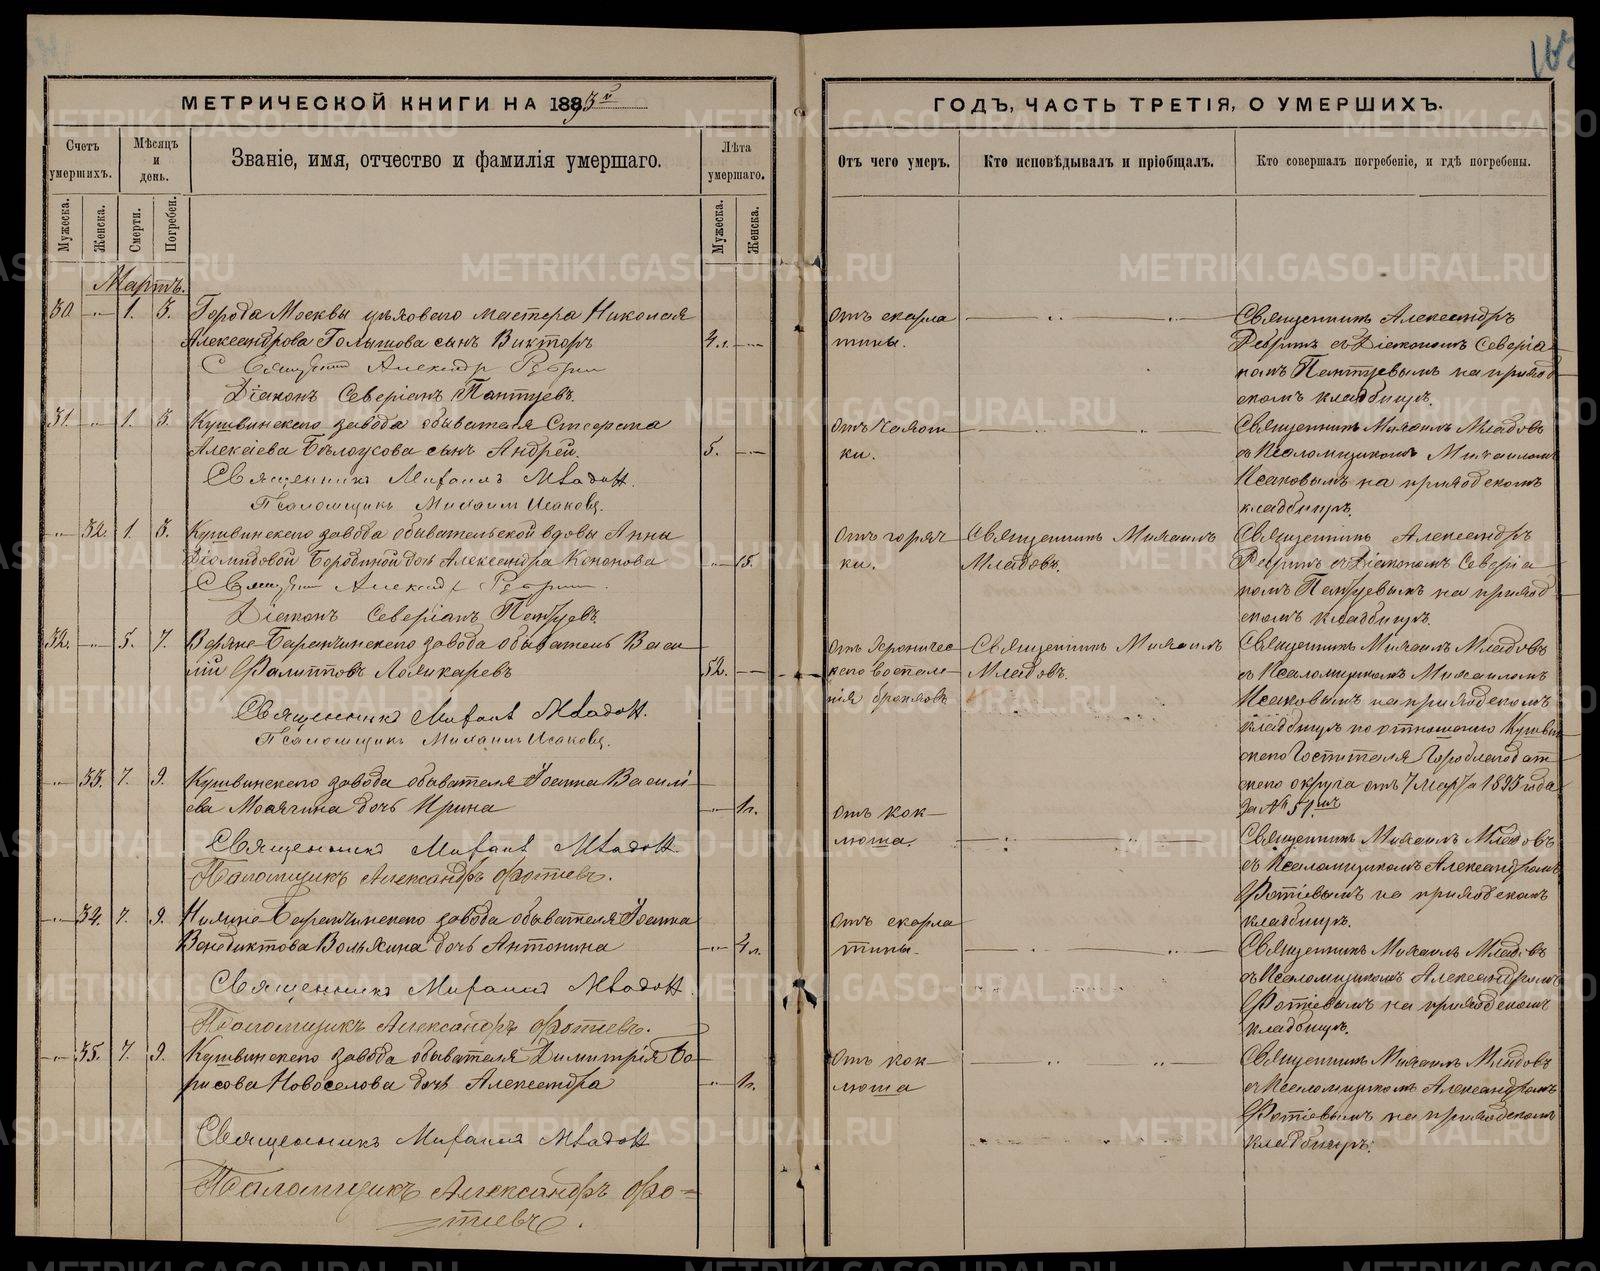 МЕТРИЧЕСКОЙ КНИГИ НА 1893й
ГОДЪ, ЧАСТЬ ТРЕТІЯ, О УМЕРШИХЪ.
Счетъ умершихъ.
Мѣсяцъ и день.
Званіе, имя, отчество и фамилія умершаго.
Лѣта умершаго.
Отъ чего умеръ.
Кто исповѣдывалъ и пріобщалъ.
Кто совершалъ погребеніе, и гдѣ погребены.
Мужеска.
Женска.
Смерти.
Погребен.
Мужеска.
Женска.
Мартъ.
30 1. 3. Города Москвы цеховаго мастера Николая
Александрова Голышова сынъ Викторъ 4.
Священникъ Александръ
Діаконъ Северіанъ Пантуевъ.
Отъ скарла
тины.
Священникъ Александръ
съ Діакономъ Северіа
номъ Пантуевымъ на приход
скомъ кладбищѣ.
31. 1. 3. Кушвинскаго завода обывателя
Алексѣева сынъ Андрей. 5.
Священникъ Михаилъ Младовъ.
Псаломщикъ Михаилъ Исаковъ.
Отъ Чахот
ки.
Священникъ Михаилъ Младовъ
съ Псаломщикомъ Михаиломъ
Исаковымъ на приходскомъ
кладбищѣ.
32. 1. 3. Кушвинскаго завода обывательской вдовы Анны
Діомидовой Бородиной дочь Александра Кононова 15.
Священникъ Александръ
Діаконъ Северіанъ Пантуевъ.
Отъ горяч
ки.
Священникъ Михаилъ
Младовъ.
Священникъ Александръ
съ Діакономъ Северіа
номъ Пантуевымъ на приход
скомъ кладбищѣ.
32. 5. 7. Баранчинскаго завода обыватель Васи
лій Филипповъ Поликарповъ 52.
Священникъ Михаилъ Младовъ.
Псаломщикъ Михаилъ Исаковъ.
Отъ хроничес
каго воспале
нія бронховъ
Священникъ Михаилъ
Младовъ.
Священникъ Михаилъ Младовъ
съ Псаломщикомъ Михаиломъ
Исаковымъ на приходскомъ
кладбищѣ по отношенію Кушвин
скаго Госпиталя Гороблагодат
скаго округа отъ 7 Марта 1893 года
за № 51.мъ
33. 7. 9. Кушвинскаго завода обывателя Іоанна Василі
ева дочь Ирина 1г.
Священникъ Михаилъ Младовъ.
Псаломщикъ Александръ Фотіевъ.
Отъ кок-
люша.
Священникъ Михаилъ Младовъ
съ Псаломщикомъ Александромъ
Фотіевымъ на приходскомъ
кладбищѣ.
34. 7. 9. Баранчинскаго завода обывателя Іоанна
Венедиктова Вольхина дочь Антонина 4 л.
Священникъ Михаилъ Младовъ
Псаломщикъ Александръ Фотіевъ.
Отъ скарла
тины.
Священникъ Михаилъ Младовъ
съ Псаломщикомъ Александромъ
Фотіевымъ на приходскомъ
кладбищѣ.
35. 7. 9. Кушвинскаго завода обывателя Димитрія Бо-
рисова Новоселова дочь Александра 1г.
Священникъ Михаилъ Младовъ
Псаломщикъ Александръ Фо=
тіевъ.
Отъ кок-
люша
Священникъ Михаилъ Младовъ
съ Псаломщикомъ Александромъ
Фотіевымъ на приходскомъ
кладбищѣ.
METRIKI.GASO-URAL.RU